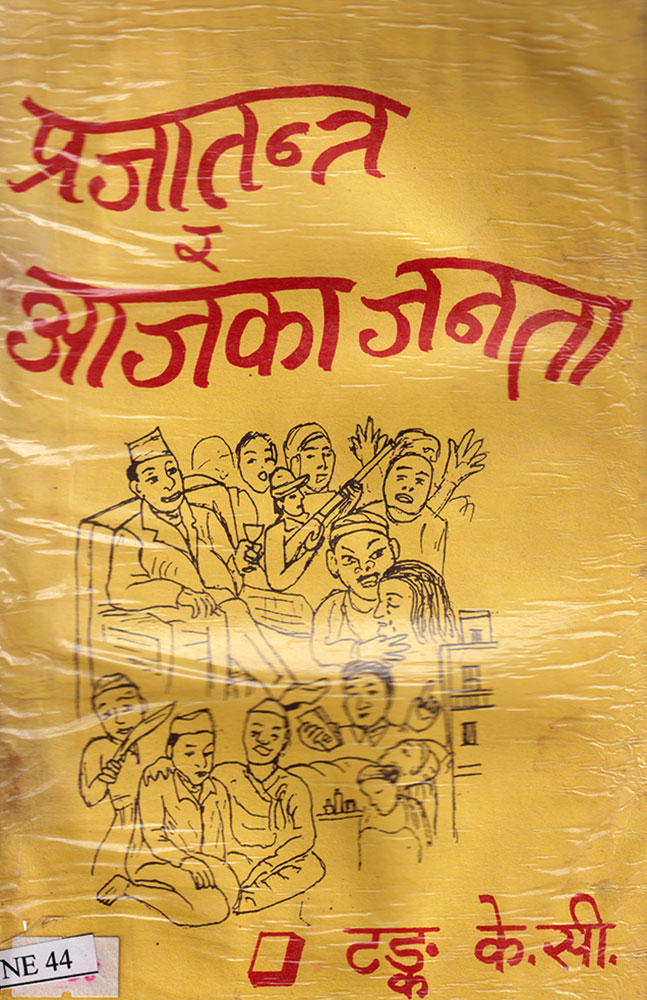 प्रजातन्त्र
र
आजका जनता
टङ्क के.सी.
NE 44